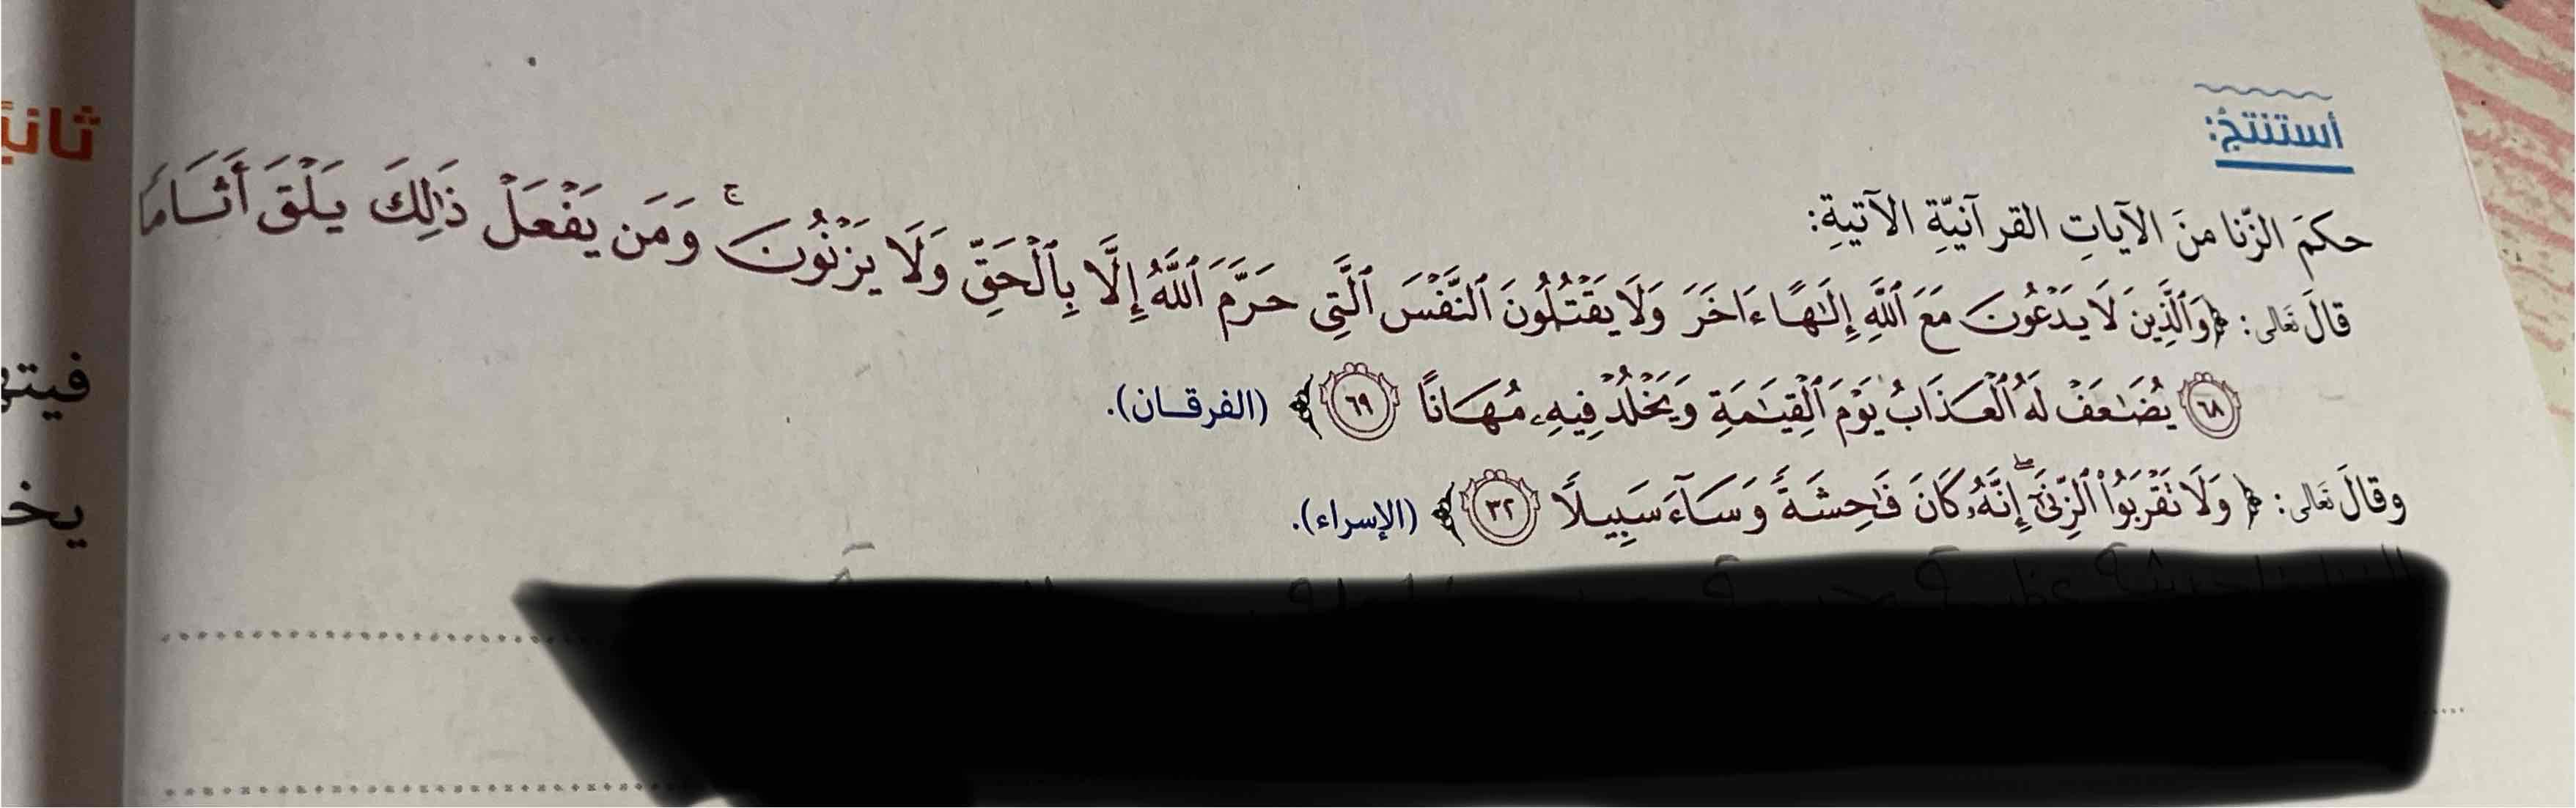 أستنتجُ:
حكمَ الزّنا منَ الآياتِ القرآنيّةِ الآتيةِ:
قالَ تَعَالى: ﴿وَٱلَّذِينَ لَا يَدْعُونَ مَعَ ٱللَّهِ إِلَٰهًا ءَاخَرَ وَلَا يَقْتُلُونَ ٱلنَّفْسَ ٱلَّتِي حَرَّمَ ٱللَّهُ إِلَّا بِٱلْحَقِّ وَلَا يَزْنُونَ ۚ وَمَن يَفْعَلْ ذَٰلِكَ يَلْقَ أَثَامًا
٦٨ يُضَٰعَفْ لَهُ ٱلْعَذَابُ يَوْمَ ٱلْقِيَٰمَةِ وَيَخْلُدْ فِيهِۦ مُهَانًا ٦٩ ﴾ (الفرقان).
وقالَ تَعَالى: ﴿ وَلَا تَقْرَبُوا۟ ٱلزِّنَىٰٓ ۖ إِنَّهُۥ كَانَ فَٰحِشَةً وَسَآءَ سَبِيلًا ٣٢ ﴾ (الإسراء).
ثانيً
فيته
يخ